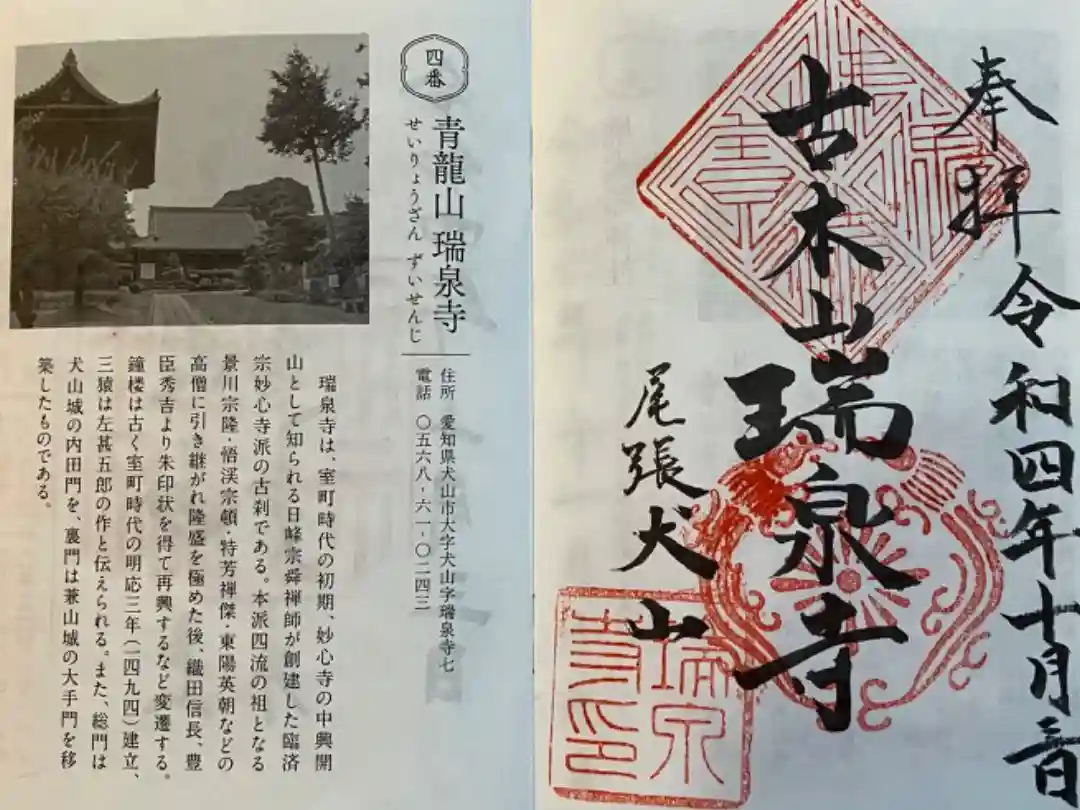 四番
青龍山 瑞泉寺
せいりょうざん ずいせんじ
住所　愛知県犬山市大字犬山字瑞泉寺七
電話　〇五六八-六一-〇二四三
瑞泉寺は、室町時代の初期、妙心寺の中興開
山として知られる日峰宗舜禅師が創建した臨済
宗妙心寺派の古刹である。本派四流の祖となる
景川宗隆・悟渓宗頓・特芳禅傑・東陽英朝などの
高僧に引き継がれ隆盛を極めた後、織田信長、豊
臣秀吉より朱印状を得て再興するなど変遷する。
鐘楼は古く室町時代の明応三年（一四九四）建立、
三猿は左甚五郎の作と伝えられる。また、総門は
犬山城の内田門を、裏門は兼山城の大手門を移
築したものである。
奉拝
令和四年十月
古木山瑞泉寺
尾張犬山
瑞泉
寺印